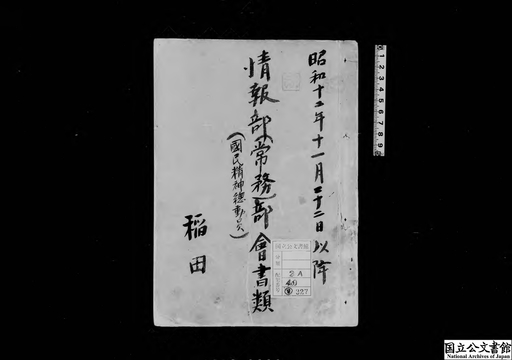 昭和十二年十一月二十二日以降
情報部(常務)部會書類
(國民精神總動員)
稲田
国立公文書館
分類
配架番号
2A
40
327
1 2 3 4 5 6 7 8 9
国立公文書館
National Archives of Japan